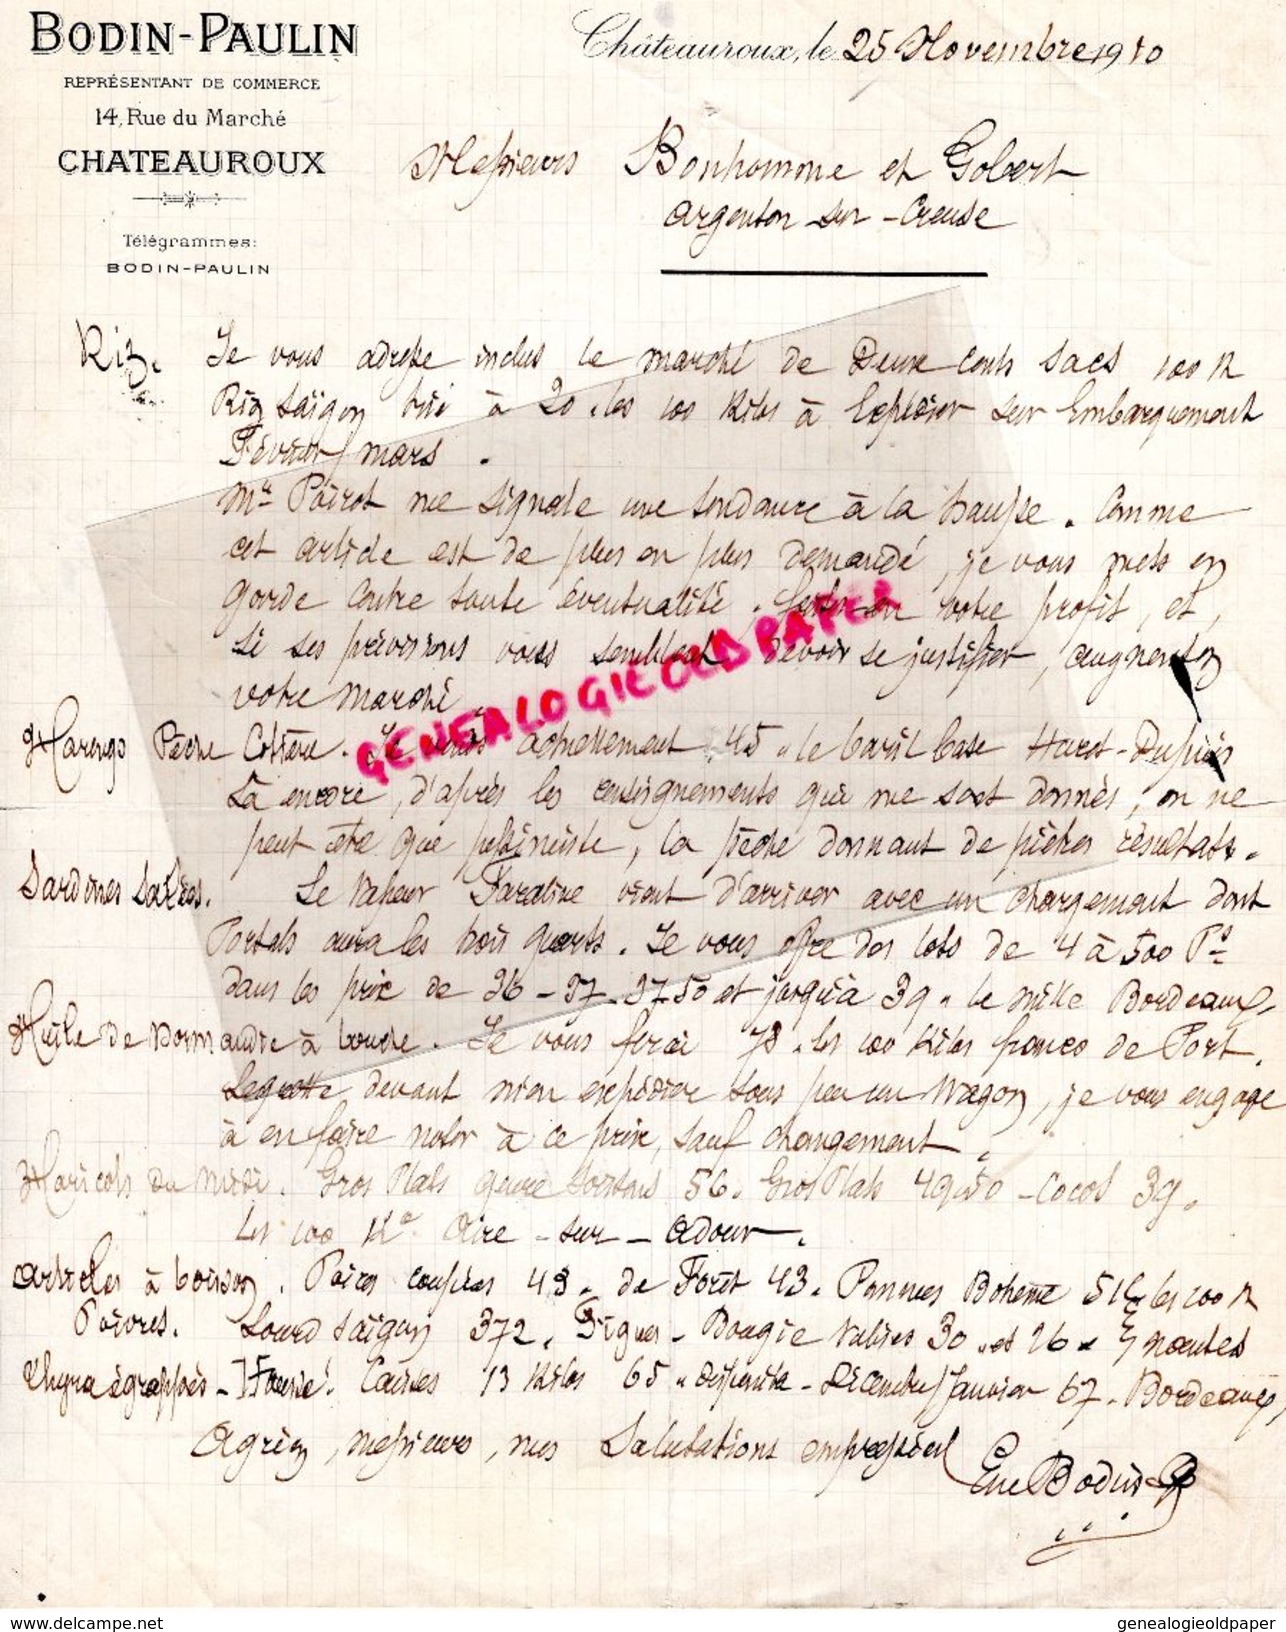 BODIN-PAULIN
REPRÉSENTANT DE COMMERCE
14, Rue du Marché
CHATEAUROUX
Télégrammes:
BODIN-PAULIN
Châteauroux, le 25 Novembre 1910
Messieurs Bonhomme et Gobert
Argenton-sur-Creuse
Riz. Je vous adresse inclus le marché de Deux cents sacs 100 K
Riz Saïgon à 20 . les 100 Kilos à Expédier sur Embarquement
Février/mars.
Mr Poirot me signale une tendance à la hausse. Comme
cet article est de plus en plus demandé, je vous mets en
garde contre toute éventualité, faites-en votre profit, et,
si ses prévisions vous semblent devoir se justifier, augmentez
votre marché.
Harengs Pêche Côtière. Je vends actuellement 45 " le baril base
Là encore, d'après les renseignements qui me sont donnés, on ne
peut être que pessimiste, la pêche donnant de piètres résultats.
Sardines Salées. Le Vapeur vient d'arriver avec un chargement dont
aura les trois quarts. Je vous offre des lots de 4 à 500 Ps
dans les prix de 36 - 37 - 37.50 et jusqu'à 39 " le mille Bordeaux,
Huile de Normandie à bouche. Je vous ferai 78 . les 100 Kilos franco de Port.
devant m'en expédier sous peu un Wagon, je vous engage
à en faire noter à ce prix, sauf changement.
Haricots du Midi. Gros Plats genre Soissons 56. Gros Plats 49.50 - Cocos 39.
les 100 Ko Aire-sur-Adour.
Articles à boisson. Poires coupées 43 . de Forêt 43. Pommes Bohême 51 les 100 K
Poivres. Lourd Saïgon 372. Figues - Bougie Valises 30 " et 26 " Nantes
Thyra égrappés - Caisses 13 Kilos 65 " - Décembre/Janvier 67 - Bordeaux,
Agréez, Messieurs, mes Salutations empressées
Ene Bodin P
GENEALOGIEOLDPAPER
www.delcampe.net
genealogieoldpaper